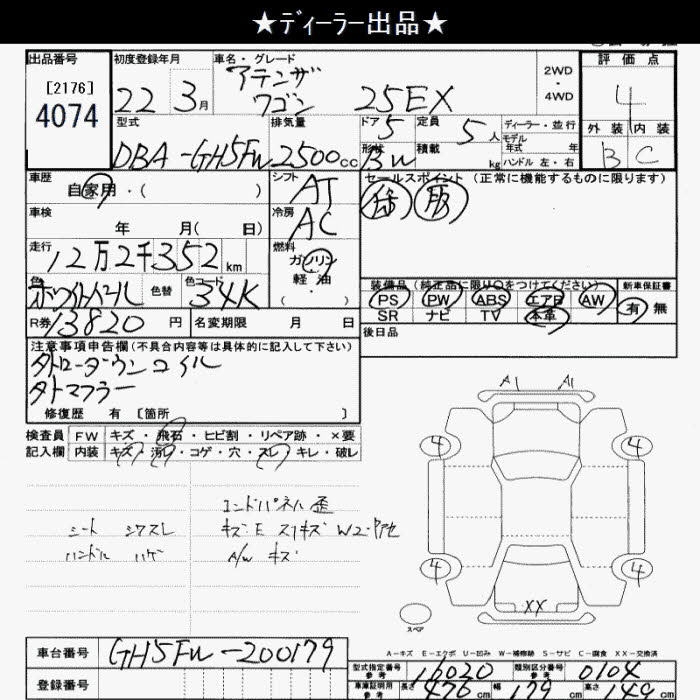 ★ディーラー出品★
出品番号 初度登録年月 車名・グレード 2WD・4WD 評価点
[2176] 4074 22年 3月 アテンザワゴン 25EX 4
型式 排気量 ドア 5 定員 5人 ディーラー・並行 外装 内装
DBA-GH5FW 2500cc 形状 BW 積載 kg モデル年式 年 ハンドル 左・右 B C
車歴 自家用・( ) シフト AT セールスポイント(正常に機能するものに限ります)
車検 年 月( 日) 冷房 AC
走行 12万2千352km 燃料 ガソリン・軽油・( )
色 ホワイトパール 色替 色コード 34K 装備品(純正品に限り○をつけてください) 新車保証書
PS PW ABS エアB AW 有 無
SR ナビ TV 本革
R券 13820円 名変期限 月 日 後日品
注意事項申告欄(不具合内容等は具体的に記入して下さい)
外ローダウンコイル
外マフラー
修復歴 有 [箇所 ]
A1 A1
検査員 FW キズ・飛石・ヒビ割・リペア跡・×要
記入欄 内装 キズ・汚レ・コゲ・穴・スレ・キレ・破レ
4 4
エンドパネル歪
シート シワスレ キズE スリキズ W2
ハンドル ハゲ A/W キズ
4 4
XX
スペア
A-キズ E-エクボ U-凹み W-補修跡 S-サビ C-腐食 XX-交換済
車台番号 GH5FW-200179
登録番号 型式指定番号 参考 16020 類別区分番号 参考 0104
車庫証明用 参考 長さ 476cm 幅 179cm 高さ 149cm